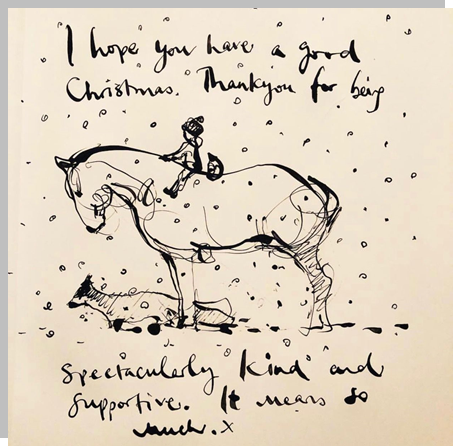 I hope you have a good
Christmas. Thankyou for being
Spectacularly kind and
Supportive. It means so
much. x